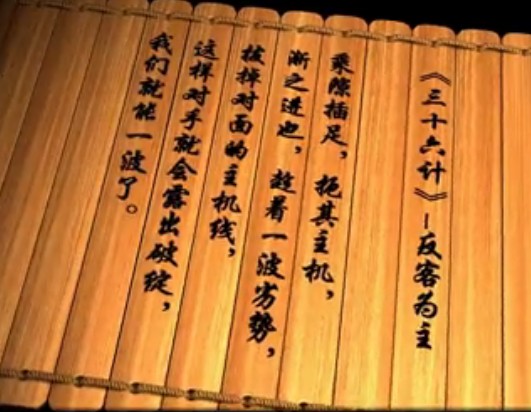 《三十六计》—反客为主
乘隙插足，扼其主机，
渐之进也，趁着一波劣势，
拔掉对面的主机线，
这样对手就会露出破绽，
我们就能一波了。